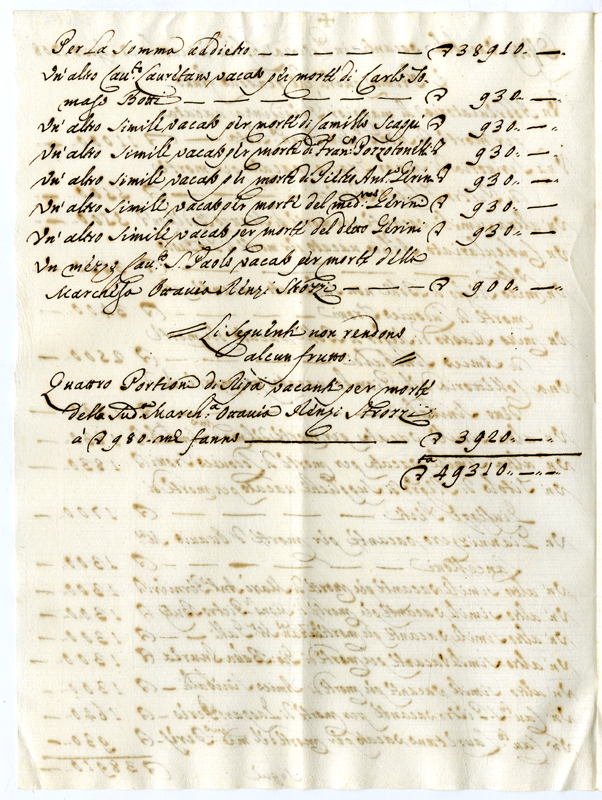 Per La Somma addietro — — — — ▽ 38910.—.
Un' altro Cau.to Lauretano vacato per morte di Carlo To
maso Botti — — — — — — ▽ 930.—
Un' altro Simile vacato per morte di Camillo Scappi ▽ 930.—
Un' altro Simile vacato per morte di Fran.co ▽ 930.—
Un' altro Simile vacato per morte di Ant.o Gerini ▽ 930.—
Un' altro Simile vacato per morte del med.mo Gerini ▽ 930.—
Un' altro Simile vacato per morte del detto Gerini ▽ 930.—
Un mezzo Cau.to S. Paolo vacato per morte della
Marchesa Ottavia Renzi Strozzi — — — ▽ 900.—
Li Seguenti non rendono
alcun frutto.
Quattro Portioni di Ripa vacanti per morte
della Sud.a March.a Ottavia Renzi Strozzi
à ▽ 980. m.ta fanno — — ▽ 3920.—
▽ta 49310.—